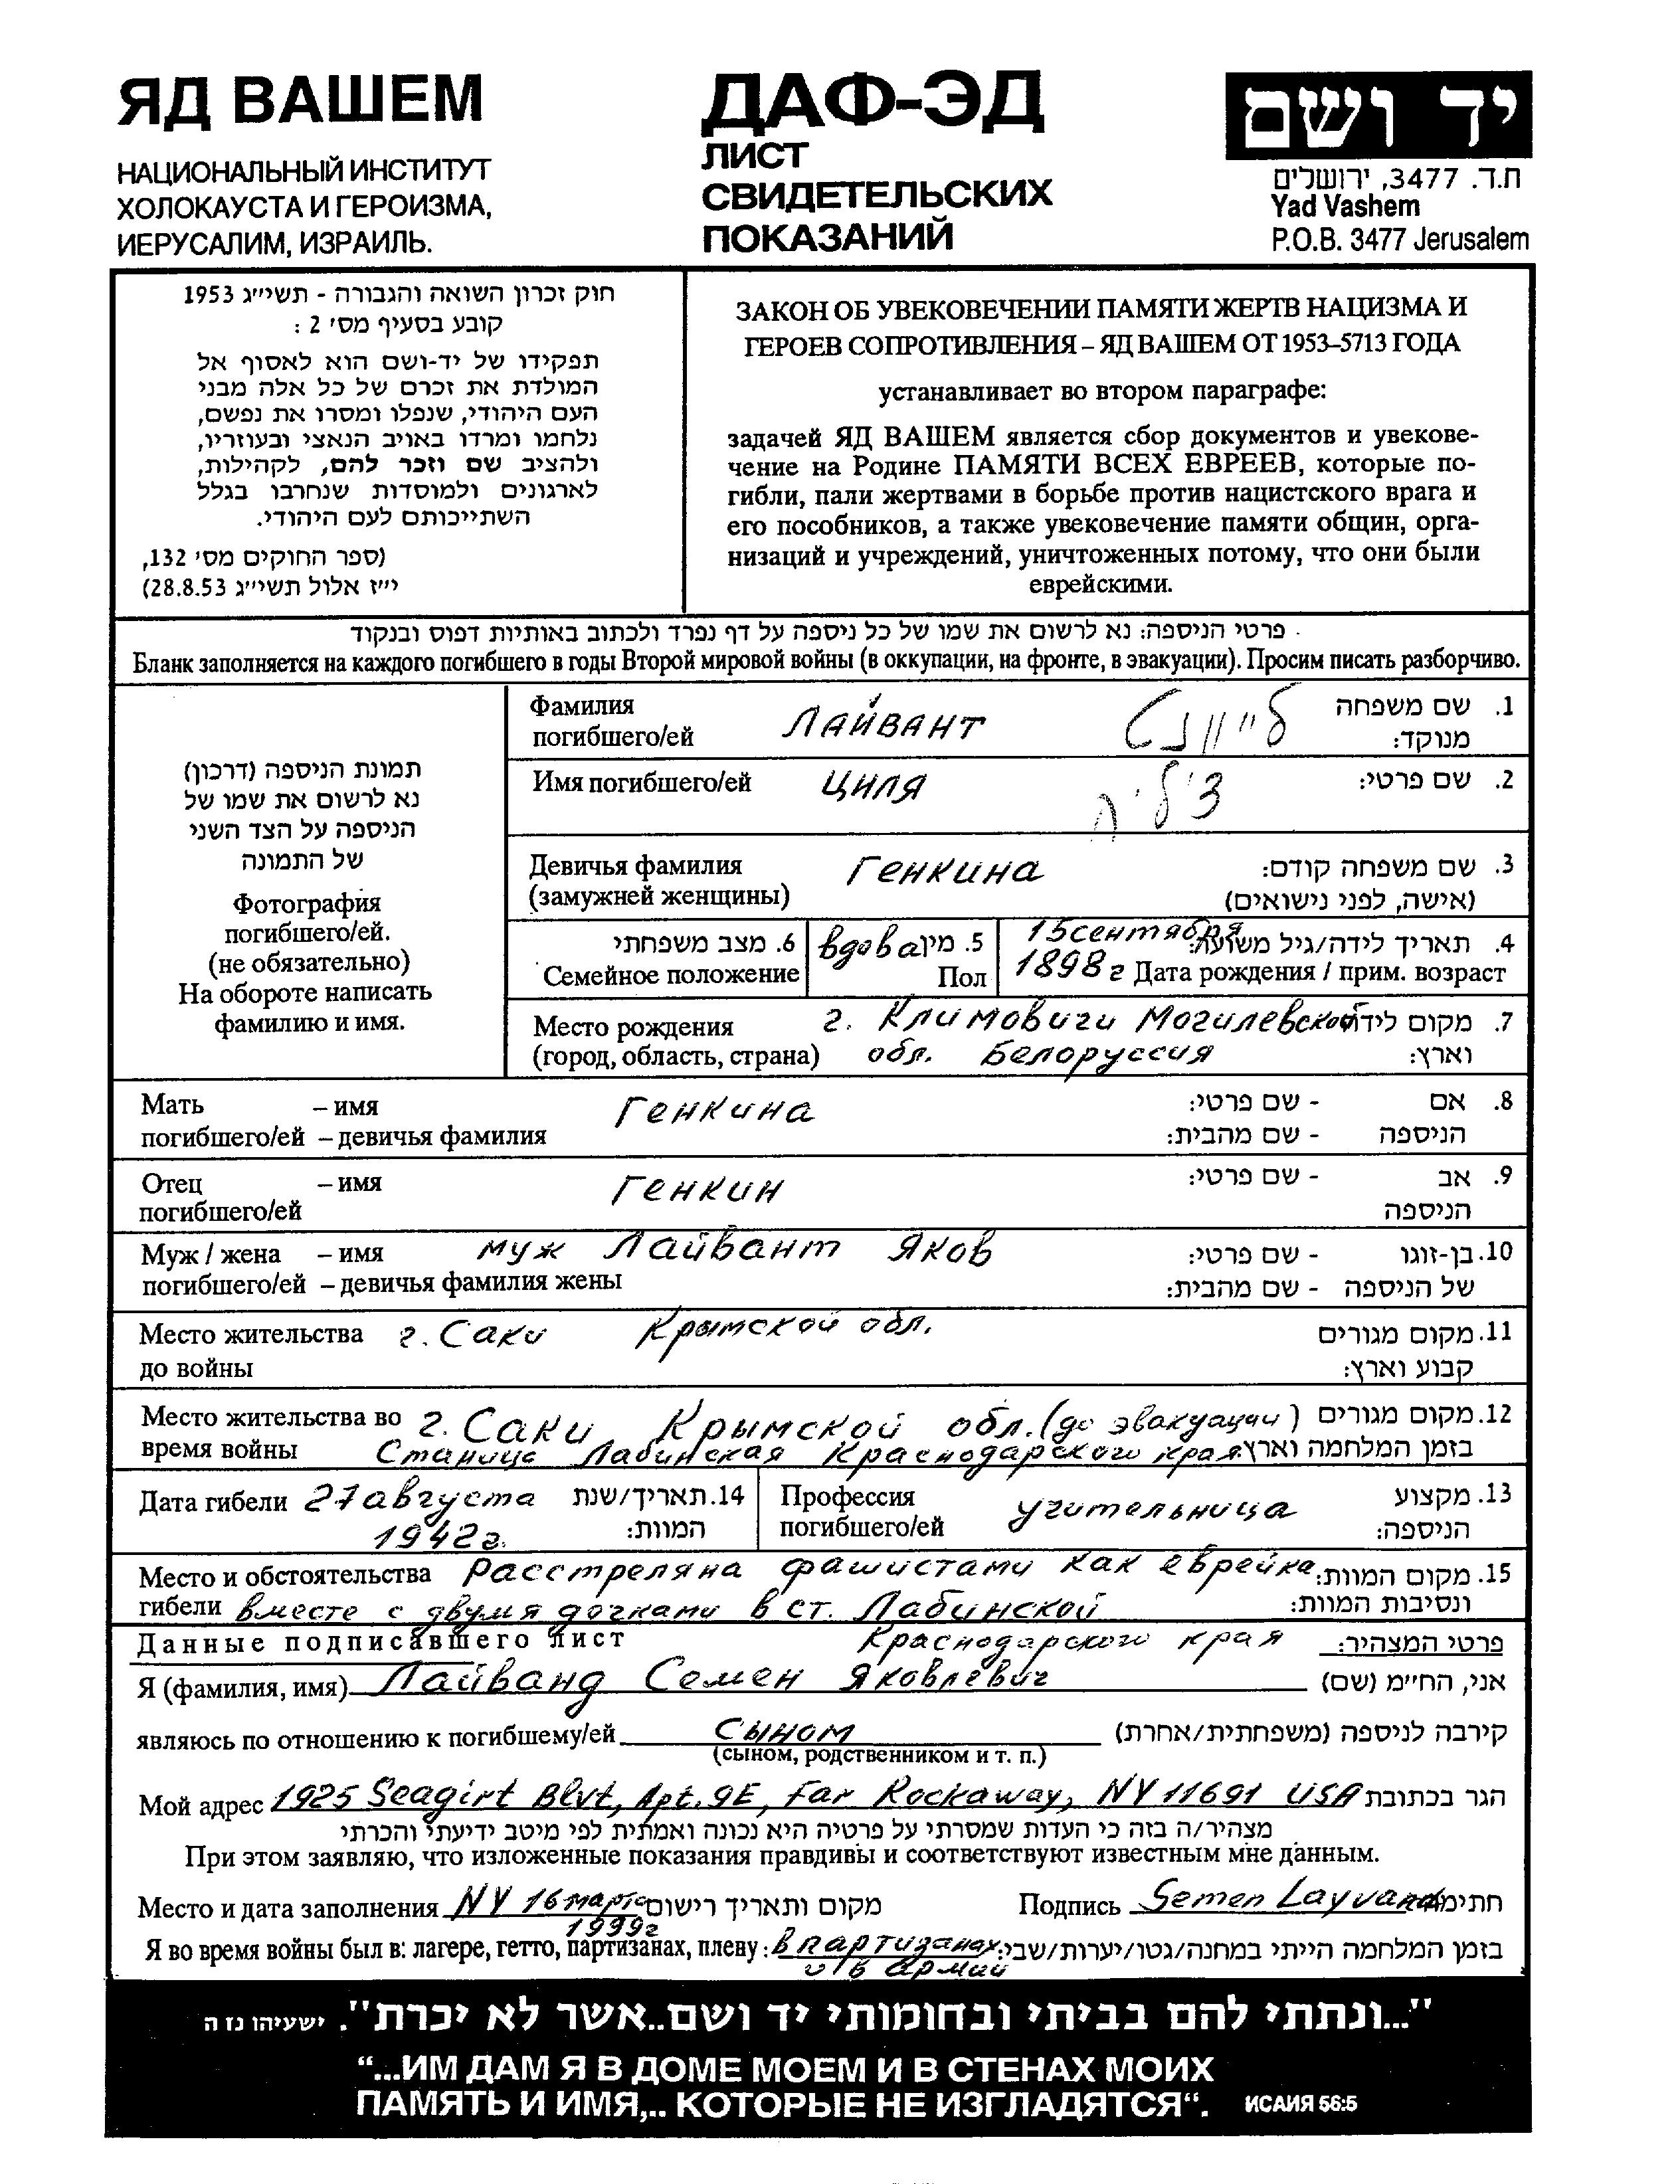 ЯД ВАШЕМ
НАЦИОНАЛЬНЫЙ ИНСТИТУТ
ХОЛОКАУСТА И ГЕРОИЗМА,
ИЕРУСАЛИМ, ИЗРАИЛЬ.
ДАФ-ЭД
ЛИСТ
СВИДЕТЕЛЬСКИХ
ПОКАЗАНИЙ
יד ושם
ת.ד. 3477, ירושלים
Yad Vashem
P.O.B. 3477 Jerusalem
חוק זכרון השואה והגבורה - תשי״ג 1953
קובע בסעיף מס׳ 2 :
תפקידו של יד-ושם הוא לאסוף אל
המולדת את זכרם של כל אלה מבני
העם היהודי, שנפלו ומסרו את נפשם,
נלחמו ומרדו באויב הנאצי ובעוזריו,
ולהציב שם וזכר להם, לקהילות,
לארגונים ולמוסדות שנחרבו בגלל
השתייכותם לעם היהודי.
(ספר החוקים מס׳ 132,
י״ז אלול תשי״ג 28.8.53)
ЗАКОН ОБ УВЕКОВЕЧЕНИИ ПАМЯТИ ЖЕРТВ НАЦИЗМА И
ГЕРОЕВ СОПРОТИВЛЕНИЯ – ЯД ВАШЕМ ОТ 1953–5713 ГОДА
устанавливает во втором параграфе:
задачей ЯД ВАШЕМ является сбор документов и увекове-
чение на Родине ПАМЯТИ ВСЕХ ЕВРЕЕВ, которые по-
гибли, пали жертвами в борьбе против нацистского врага и
его пособников, а также увековечение памяти общин, орга-
низаций и учреждений, уничтоженных потому, что они были
еврейскими.
פרטי הניספה: נא לרשום את שמו של כל ניספה על דף נפרד ולכתוב באותיות דפוס ובנקוד
Бланк заполняется на каждого погибшего в годы Второй мировой войны (в оккупации, на фронте, в эвакуации). Просим писать разборчиво.
תמונת הניספה (דרכון)
נא לרשום את שמו של
הניספה על הצד השני
של התמונה
Фотография
погибшего/ей.
(не обязательно)
На обороте написать
фамилию и имя.
Фамилия ЛАЙВАНТ לייוונט 1. שם משפחה
погибшего/ей מנוקד:
Имя погибшего/ей ЦИЛЯ צילה 2. שם פרטי:
Девичья фамилия Генкина 3. שם משפחה קודם:
(замужней женщины) (אישה, לפני נישואים)
6. מצב משפחתי вдова 5. מין 15 сентября 4. תאריך לידה/גיל משוער:
Семейное положение Пол 1898 г Дата рождения / прим. возраст
Место рождения г. Климовичи Могилевской 7. מקום לידה
(город, область, страна) обл. Белоруссия וארץ:
Мать – имя Генкина 8. אם - שם פרטי:
погибшего/ей – девичья фамилия הניספה - שם מהבית:
Отец – имя Генкин 9. אב - שם פרטי:
погибшего/ей הניספה
Муж / жена – имя муж Лайвант Яков 10. בן-זוגו - שם פרטי:
погибшего/ей – девичья фамилия жены של הניספה - שם מהבית:
Место жительства г. Саки Крымской обл. 11. מקום מגורים
до войны קבוע וארץ:
Место жительства во г. Саки Крымской обл. (до эвакуации) 12. מקום מגורים
время войны Станице Лабинская Краснодарского края בזמן המלחמה וארץ:
Дата гибели 27 августа 14. תאריך/שנת
1942 г. המוות:
Профессия учительница 13. מקצוע
погибшего/ей הניספה:
Место и обстоятельства Расстреляна фашистами как еврейка 15. מקום המוות:
гибели вместе с двумя дочками в ст. Лабинской ונסיבות המוות:
Данные подписавшего лист Краснодарского края פרטי המצהיר:
Я (фамилия, имя) Лайванд Семен Яковлевич אני, החי״מ (שם)
являюсь по отношению к погибшему/ей сыном קירבה לניספה (משפחתית/אחרת)
(сыном, родственником и т. п.)
Мой адрес 1925 Seagirt Blvt, Apt. 9E, Far Rockaway, NY 11691 USA הגר בכתובת
מצהיר/ה בזה כי העדות שמסרתי על פרטיה היא נכונה ואמתית לפי מיטב ידיעתי והכרתי
При этом заявляю, что изложенные показания правдивы и соответствуют известным мне данным.
Место и дата заполнения NY 16 марта מקום ותאריך רישום Подпись Semen Layvand חתימה
1999г
Я во время войны был в: лагере, гетто, партизанах, плену: в партизанах בזמן המלחמה הייתי במחנה/גטו/יערות/שבי:
и в армии
"...ונתתי להם בביתי ובחומותי יד ושם..אשר לא יכרת". ישעיהו נז ה
“...ИМ ДАМ Я В ДОМЕ МОЕМ И В СТЕНАХ МОИХ
ПАМЯТЬ И ИМЯ,.. КОТОРЫЕ НЕ ИЗГЛАДЯТСЯ“. ИСАИЯ 56:5